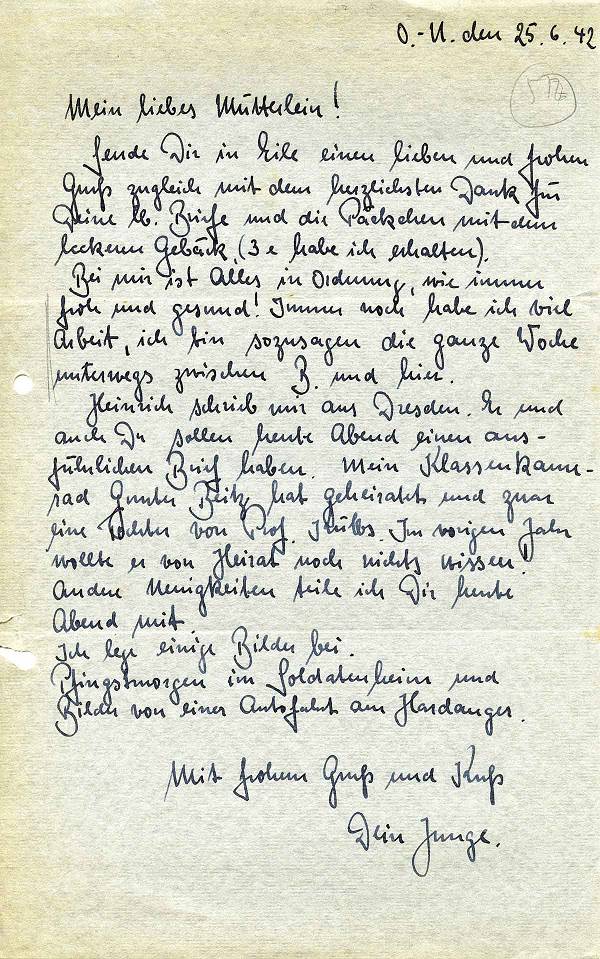 O.-U. den 25.6.42
Mein liebes Mütterlein!
Sende Dir in Eile einen lieben und frohen
Gruß zugleich mit dem herzlichsten Dank für
Deine lb. Briefe und die Päckchen mit dem
leckeren Gebäck, (3 e habe ich erhalten).
Bei mir ist Alles in Ordnung, wie immer
froh und gesund! Immer noch habe ich viel
Arbeit, ich bin sozusagen die ganze Woche
unterwegs zwischen B. und hier.
Heinrich schrieb mir aus Dresden. Er und
auch Du sollen heute Abend einen aus-
führlichen Brief haben. Mein Klassenkame-
rad Gunter Beitz hat geheiratet und zwar
eine Tochter von Prof. Im vorigen Jahr
wollte er von Heirat noch nichts wissen!
Andere Neuigkeiten teile ich Dir heute
Abend mit.
Ich lege einige Bilder bei.
Pfingstmorgen im Soldatenheim und
Bilder von einer Autofahrt am Hardanger.
Mit frohem Gruß und Kuß
Dein Junge.